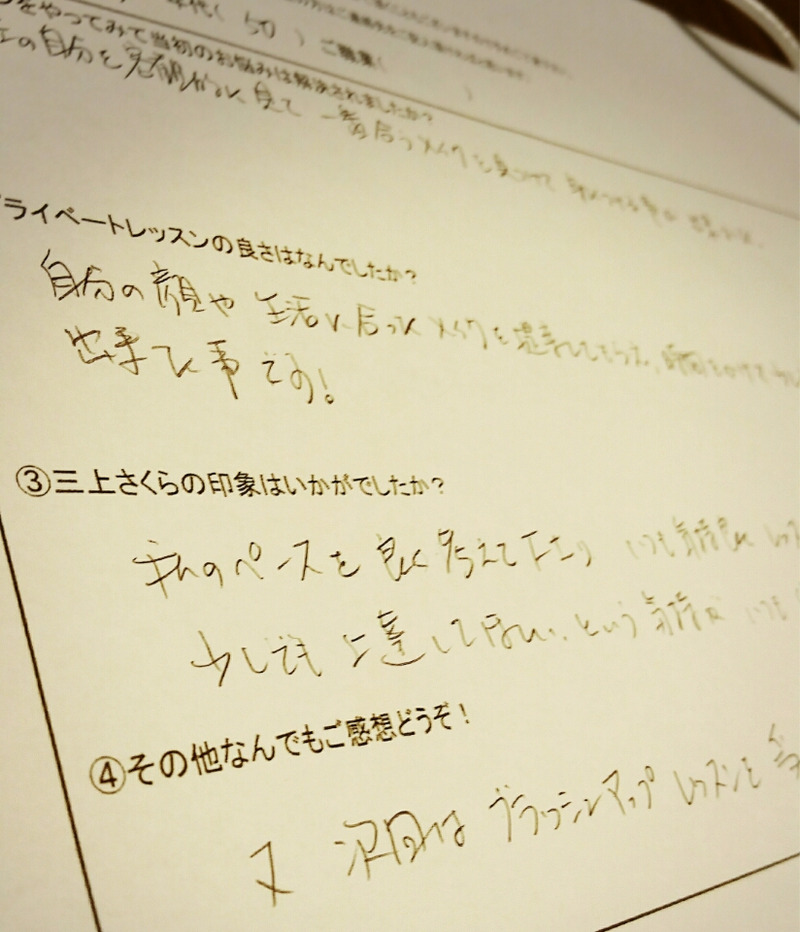 年代( 50 ) ご職業( )
をやってみて当初のお悩みは解決されましたか?
の自分を客観的に見て 一番合うメイクを見つけて
ライベートレッスンの良さはなんでしたか?
自分の顔や 生活に合ったメイクを提案してもらえ、時間をかけて
出来た事です!
③三上さくらの印象はいかがでしたか?
私のペースを良く考えて下さり いつも気持良く レッス
少しでも 上達してほしい、という気持が いつも
④その他なんでもご感想どうぞ!
又 次回は ブラッシュアップ レッスンを